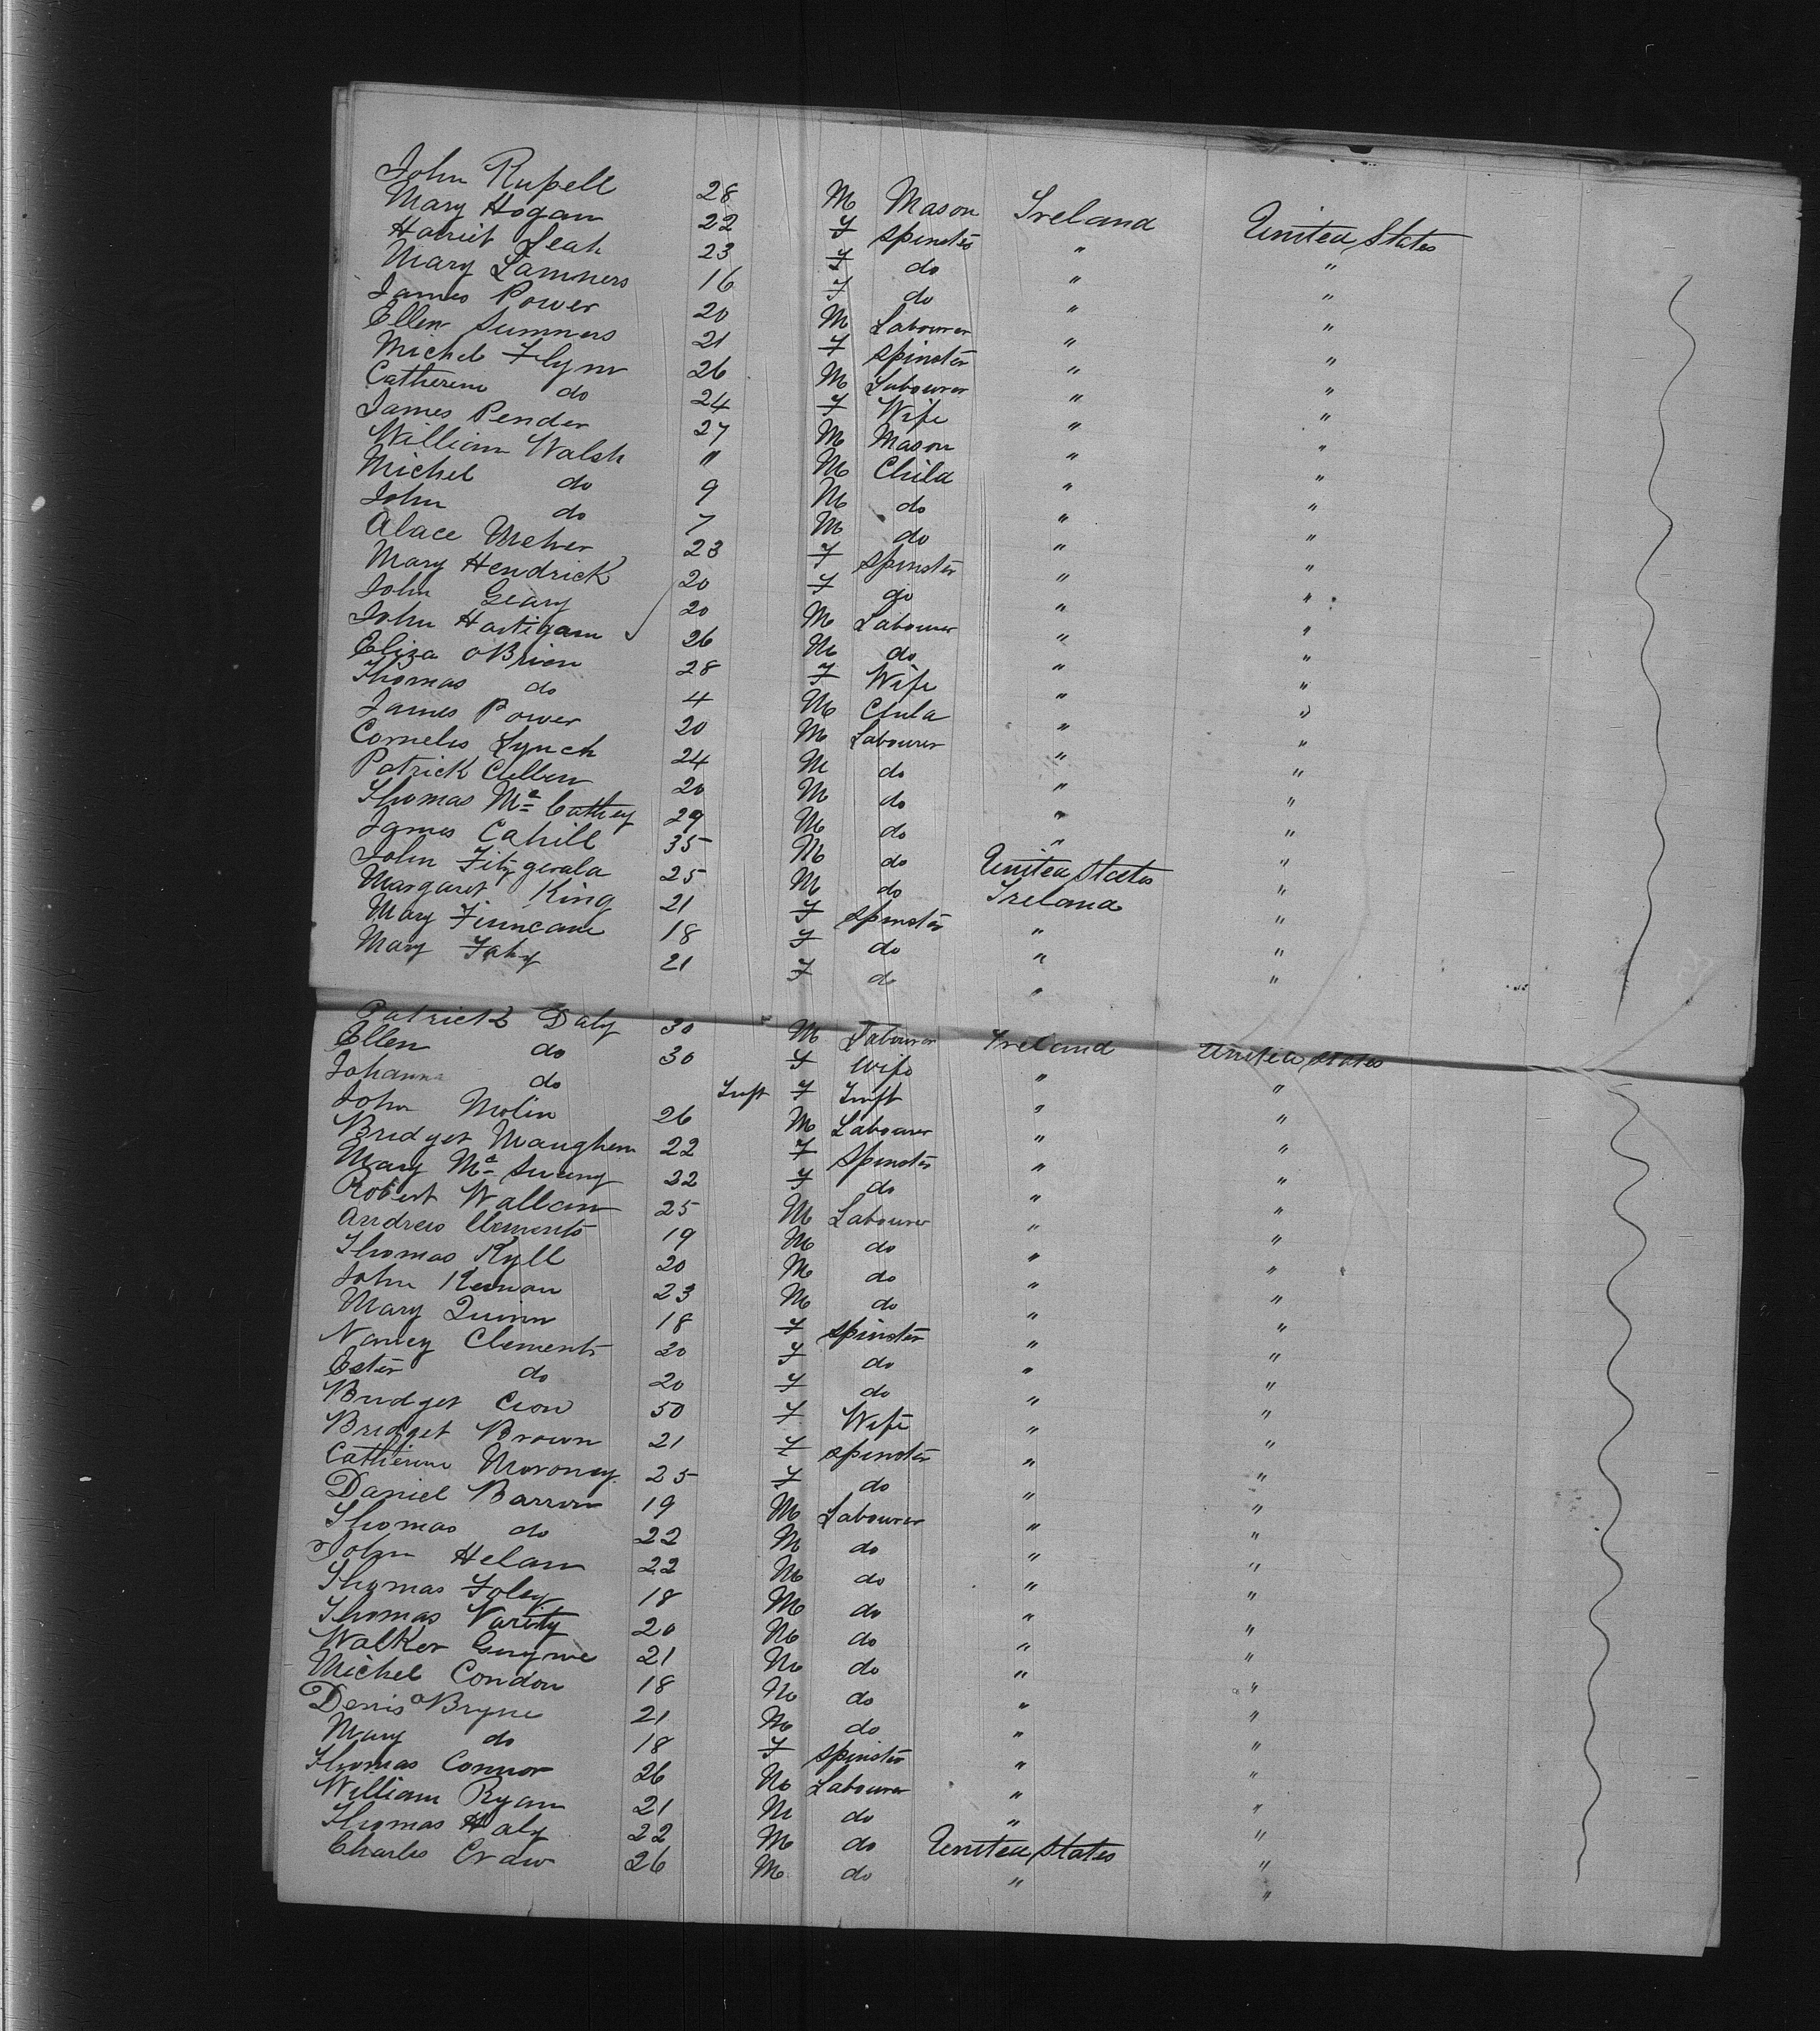 John Russell 28 M Mason Ireland United States
Mary Hogan 22 F Spinster " "
Harriet Leah 23 F do " "
Mary Lamners 16 F do " "
James Power 20 M Labourer " "
Ellen Summers 21 F Spinster " "
Michel Flynn 26 M Labourer " "
Catherine do 24 F Wife " "
James Pender 27 M Mason " "
William Walsh 11 M Child " "
Michel do 9 M do " "
John do 7 M do " "
Alace Meher 23 F Spinster " "
Mary Hendrick 20 F do " "
John Geary 20 M Labourer " "
John Hartigan 26 M do " "
Eliza OBrien 28 F Wife " "
Thomas do 4 M Child " "
James Power 20 M Labourer " "
Cornelis Lynch 24 M do " "
Patrick Cullen 20 M do " "
Thomas Mc Cathey 29 M do " "
James Cahill 35 M do United States "
John Fitzgerald 25 M do Ireland "
Margaret King 21 F Spinster " "
Mary Finncane 18 F do " "
Mary Fahy 21 F do " "
Patrick Daly 30 M Labourer Ireland United States
Ellen do 30 F Wife " "
Johanna do Inft F Inft " "
John Nolin 26 M Labourer " "
Bridget Maughen 22 F Spinster " "
Mary Mc Sweeny 22 F do " "
Robert Wallam 25 M Labourer " "
Andrew Clements 19 M do " "
Thomas Kyll 20 M do " "
John Keenan 23 M do " "
Mary Quinn 18 F Spinster " "
Nancy Clements 20 F do " "
Ester do 20 F do " "
Bridget Cron 50 F Wife " "
Bridget Brown 21 F Spinster " "
Catherine Moroney 25 F do " "
Daniel Barron 19 M Labourer " "
Thomas do 22 M do " "
John Helan 22 M do " "
Thomas Foley 18 M do " "
Thomas Varity 20 M do " "
Walker Gwynne 21 M do " "
Michel Condon 18 M do " "
Denis OBryne 21 M do " "
Mary do 18 F Spinster " "
Thomas Connor 26 M Labourer " "
William Ryan 21 M do " "
Thomas Haly 22 M do United States "
Charles Craw 26 M do " "